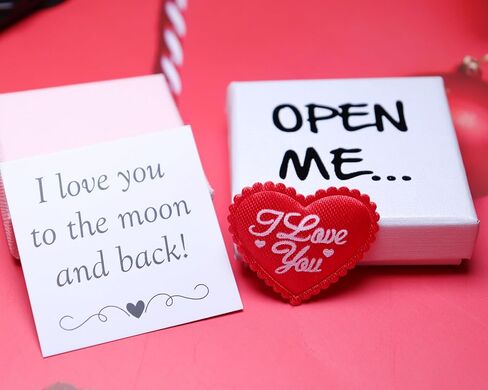 I love you
to the moon
and back!
OPEN
ME...
I Love
You